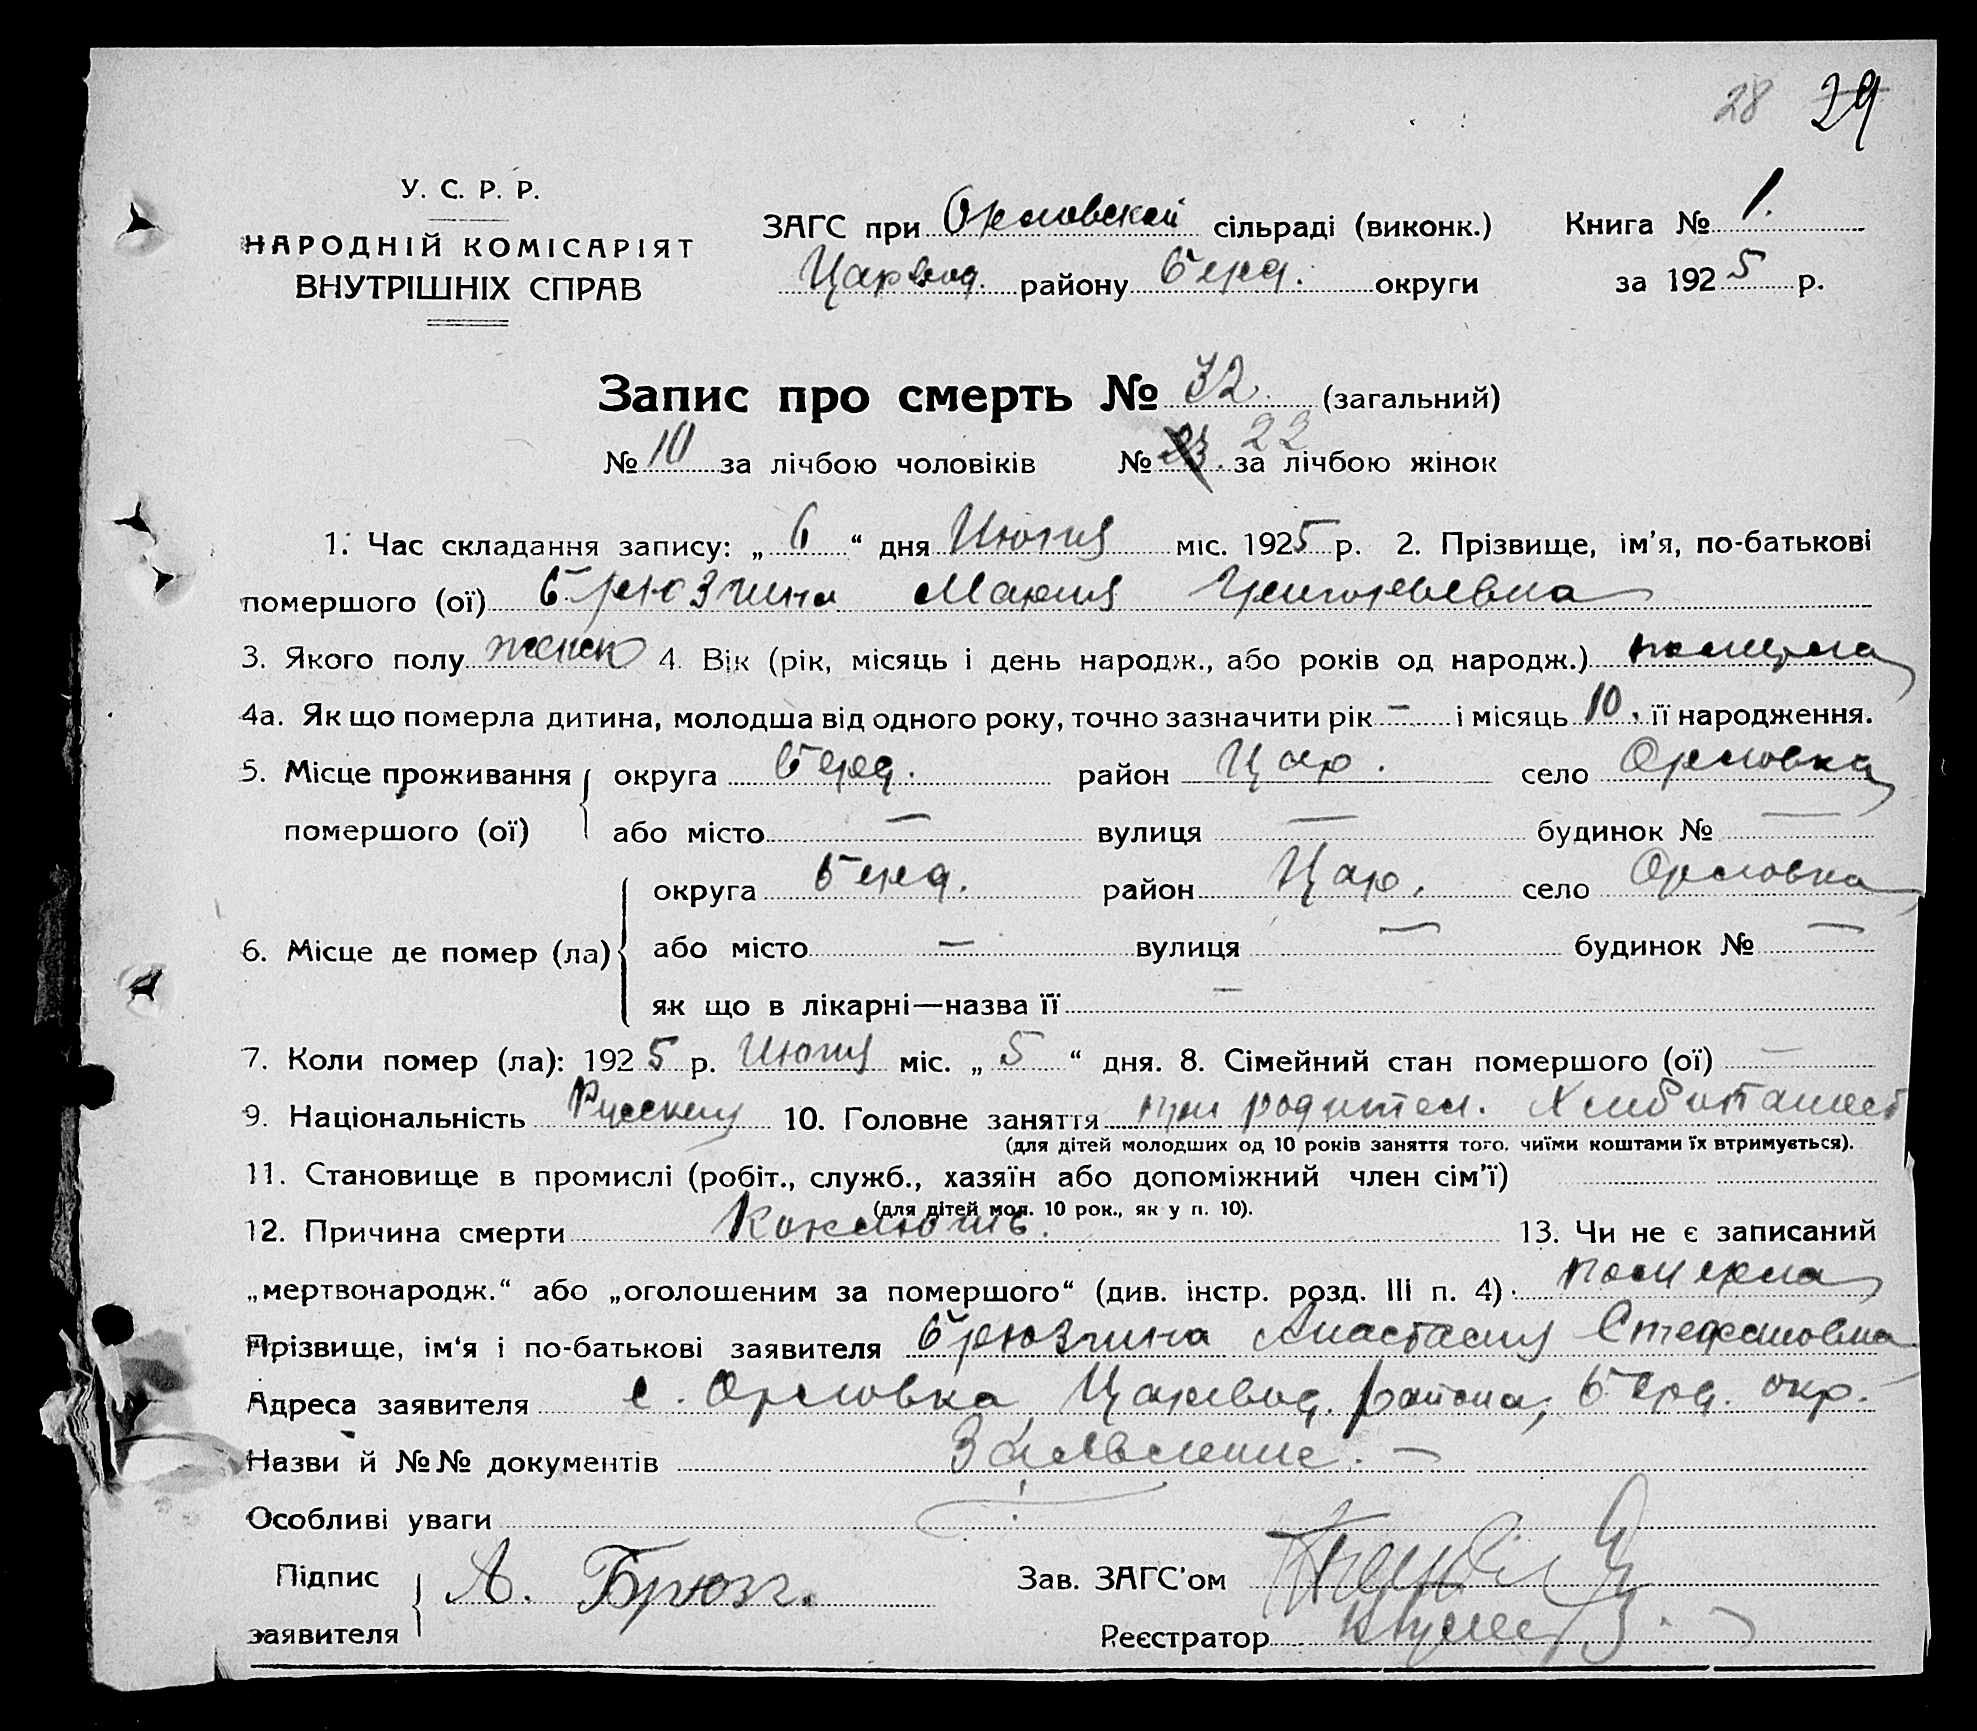 28 29
У. С. Р. Р.
НАРОДНІЙ КОМІСАРІЯТ
ВНУТРІШНІХ СПРАВ
ЗАГС при Орловской сільраді (виконк.) Книга № 1.
Царевод. району Берд. округи за 1925 р.
Запис про смерть № 32. (загальний)
№ 10 за лічбою чоловіків № 23. 22 за лічбою жінок
1. Час складання запису: „ 6 “ дня Июня міс. 1925 р. 2. Прізвище, ім’я, по-батькові
помершого (ої) Брюзгина Мария Григорьевна
3. Якого полу женск 4. Вік (рік, місяць і день народж., або років од народж.) померла
4а. Як що померла дитина, молодша від одного року, точно зазначити рік — і місяць 10. її народження.
5. Місце проживання округа Берд. район Цар. село Орловка
помершого (ої) або місто — вулиця — будинок № —
округа Берд. район Цар. село Орловка
6. Місце де помер (ла) або місто — вулиця — будинок № —
як що в лікарні—назва її —
7. Коли помер (ла): 1925 р. Июня міс. „ 5 “ дня. 8. Сімейний стан помершого (ої) —
9. Національність Русская 10. Головне заняття при родител.
(для дітей молодших од 10 років заняття того, чиїми коштами їх втримується).
11. Становище в промислі (робіт., служб., хазяїн або допоміжний член сім’ї)
(для дітей мол. 10 рок., як у п. 10).
12. Причина смерти Коклюшь. 13. Чи не є записаний
„мертвонародж.“ або „оголошеним за помершого“ (див. інстр. розд. III п. 4) померла
Прізвище, ім‘я і по-батькові заявителя Брюзгина Анастасия Стефановна
Адреса заявителя с. Орловка, Царевод. района, Берд. окр.
Назви й №№ документів Заявление. —
Особливі уваги
Підпис
заявителя А. Брюзг.
Зав. ЗАГС’ом
Реєстратор